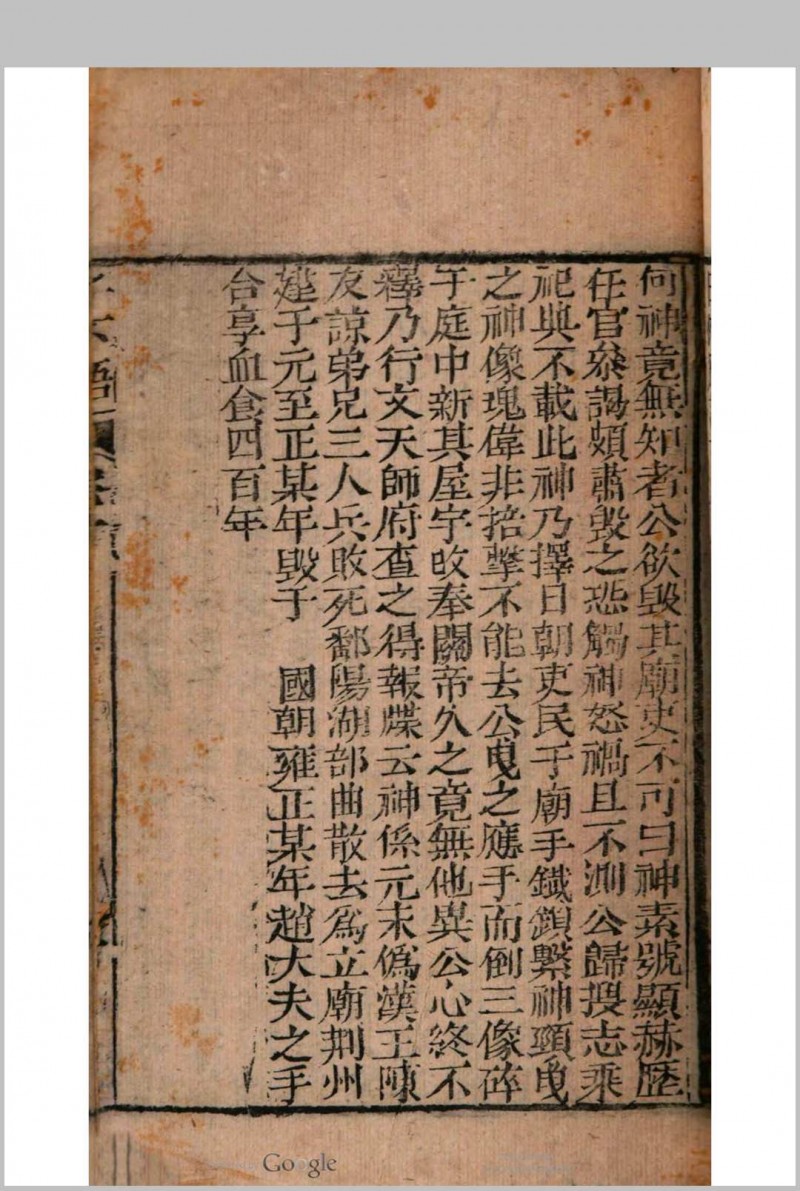 何神竟無知者公欲毁其廟吏不可曰神素號顯赫歴
任官叅謁頗肅毁之恐觸神怒禍且不測公歸搜志乘
祀典不載此神乃擇日朝吏民于廟手鐵鎻繫神頸曳
之神像瑰偉非掊擊不能去公曳之應手而倒三像碎
于庭中新其屋宇改奉關帝久之竟無他異公心終不
釋乃行文天師府查之得報牒云神係元末僞漢王陳
友諒弟兄三人兵敗死鄱陽湖部曲散去爲立廟荆州
建于元至正某年毁于　國朝雍正某年趙大夫之手
合享血食四百年
Google